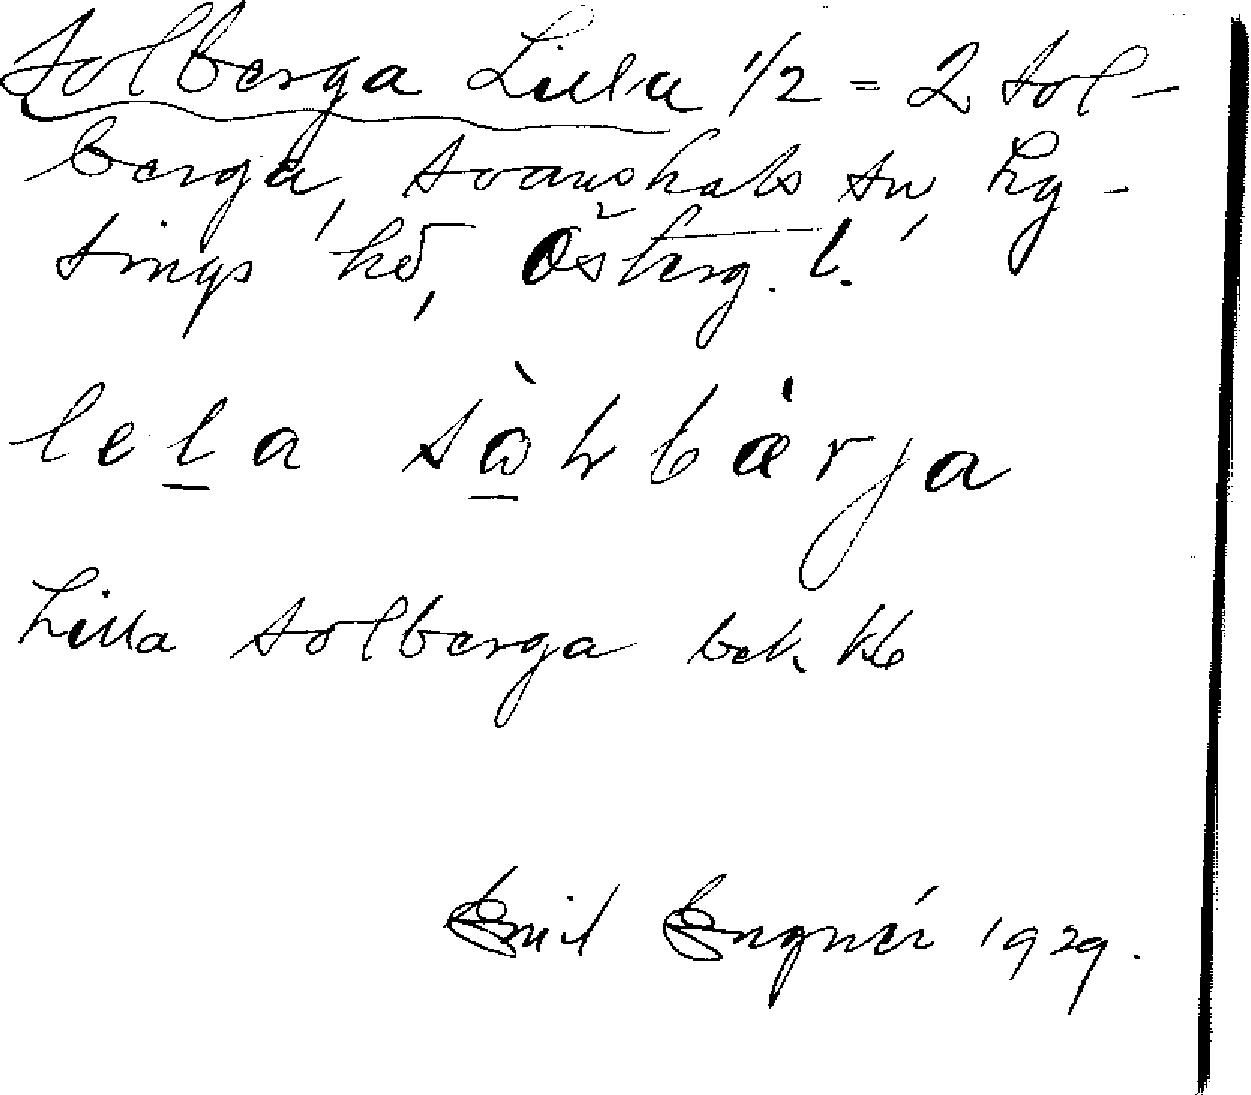 Solberga Lilla 1/2 = 2 Sol-
berga, Svanshals sn, Ly-
sings hd, Österg. l.
lela sòlbárja
Lilla Solberga bek. kb
Emil Engnér 1929.